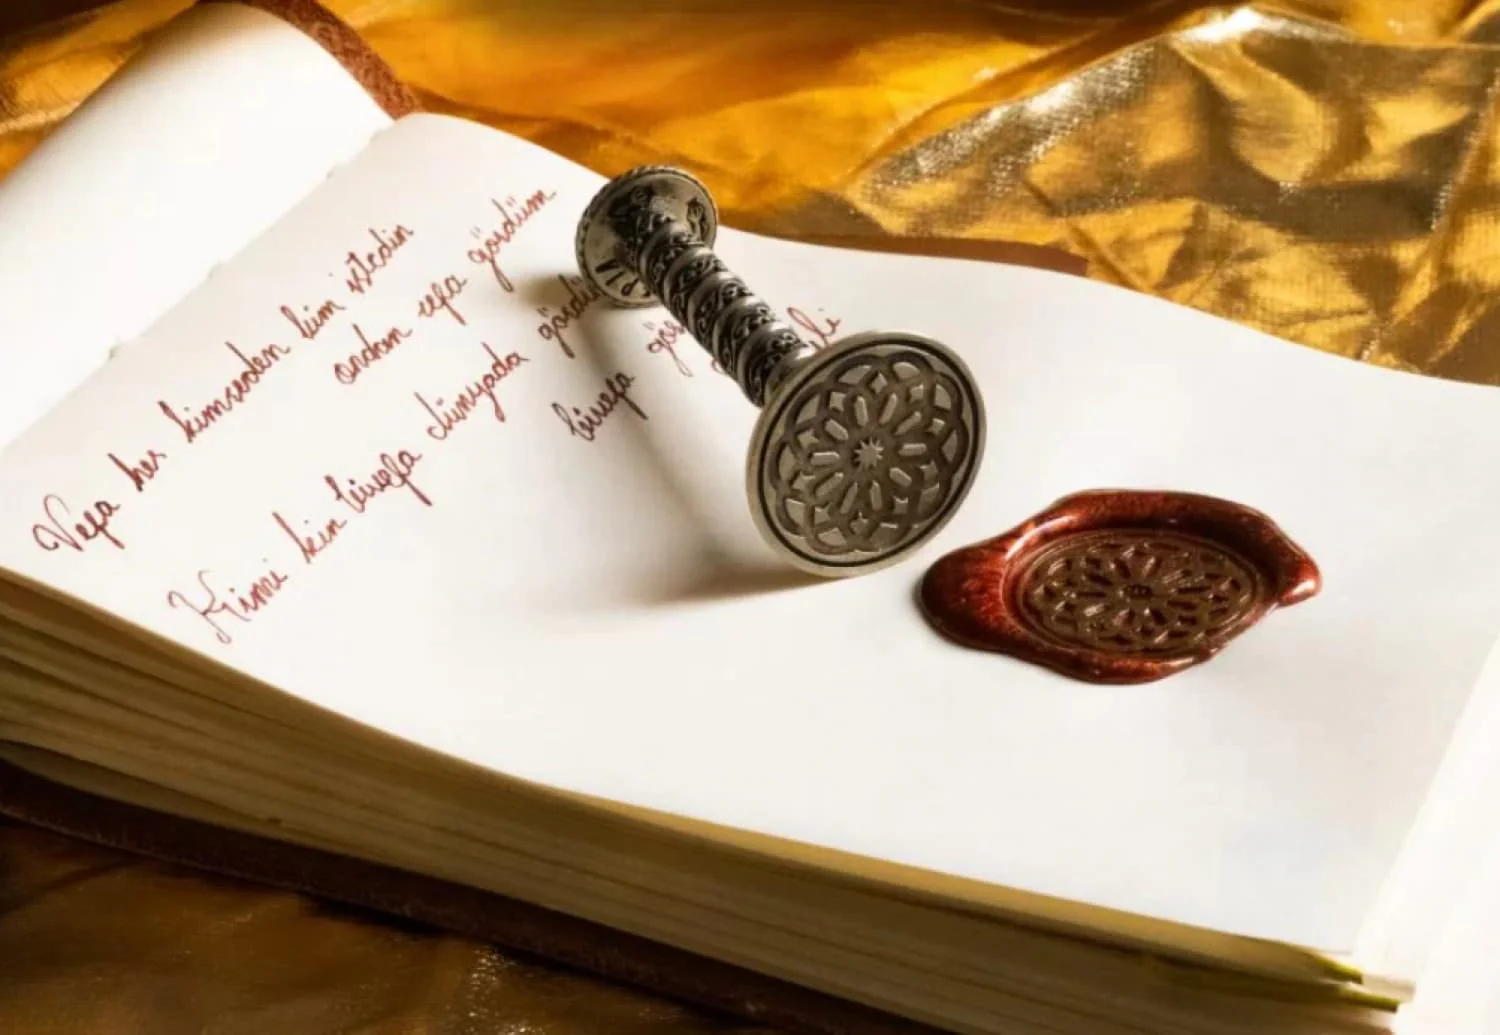 Vefa her kimseden kim istedin
ondan cefa gördüm
Kimi kin bîvefa dünyada gördü
bîvefa gör